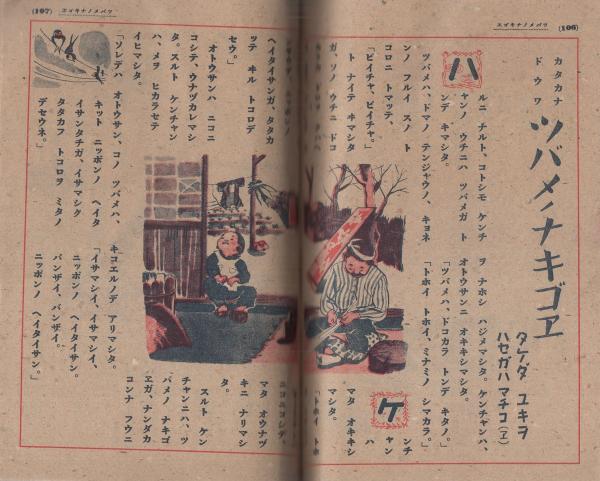 (106)
ツバメノナキゴヱ
カタカナ
ドウワ
ツバメノナキゴヱ
タケダ ユキヲ
ハセガハ マチコ(ヱ)
ハルニ ナルト、コトシモ ケンチ
ャンノ ウチニハ ツバメガ ト
ンデ キマシタ。
ツバメハ、ドマノ テンジャウノ、キョネ
ンノ フルイ スノ ト
コロニ トマッテ、
「ピイチャ、ピイチャ。」
ト ナイテ キマシタ
ガ、ソノ ウチニ ドコ
ヲ ナホシ ハジメマシタ。ケンチャンハ、
オトウサンニ オキキシマシタ。
「ツバメハ、ドコカラ トンデ キタノ。」
「トホイ トホイ、ミナミノ シマカラ。」
ケンチ
ャン
ハ
マタ オキキシ
マシタ。
「トホイ トホ
(107)
ツバメノナキゴヱ
ニッポンノ
ヘイタイサンガ、タタカ
ッテ キル トコロデ
セウ。」
オトウサンハ ニコニ
コシテ、ウナヅカレマシ
タ。スルト ケンチャン
ハ、メヲ ヒカラセテ
イヒマシタ。
「ソレデハ オトウサン、コノ ツバメハ、
キット ニッポンノ ヘイタ
イサンタチガ、イサマシク
タタカフ トコロヲ ミタノ
デセウネ。」
ニコニコシテ、
マタ オウナヅ
キニ ナリマシ
タ。
スルト ケン
チャンニハ、ツ
バメノ ナキゴ
ヱガ、ナンダカ
コンナ フウニ
キコエルノデ アリマシタ。
「イサマシイ、イサマシイ、
ニッポンノ ヘイタイサン。
バンザイ、バンザイ。
ニッポンノ ヘイタイサン。」